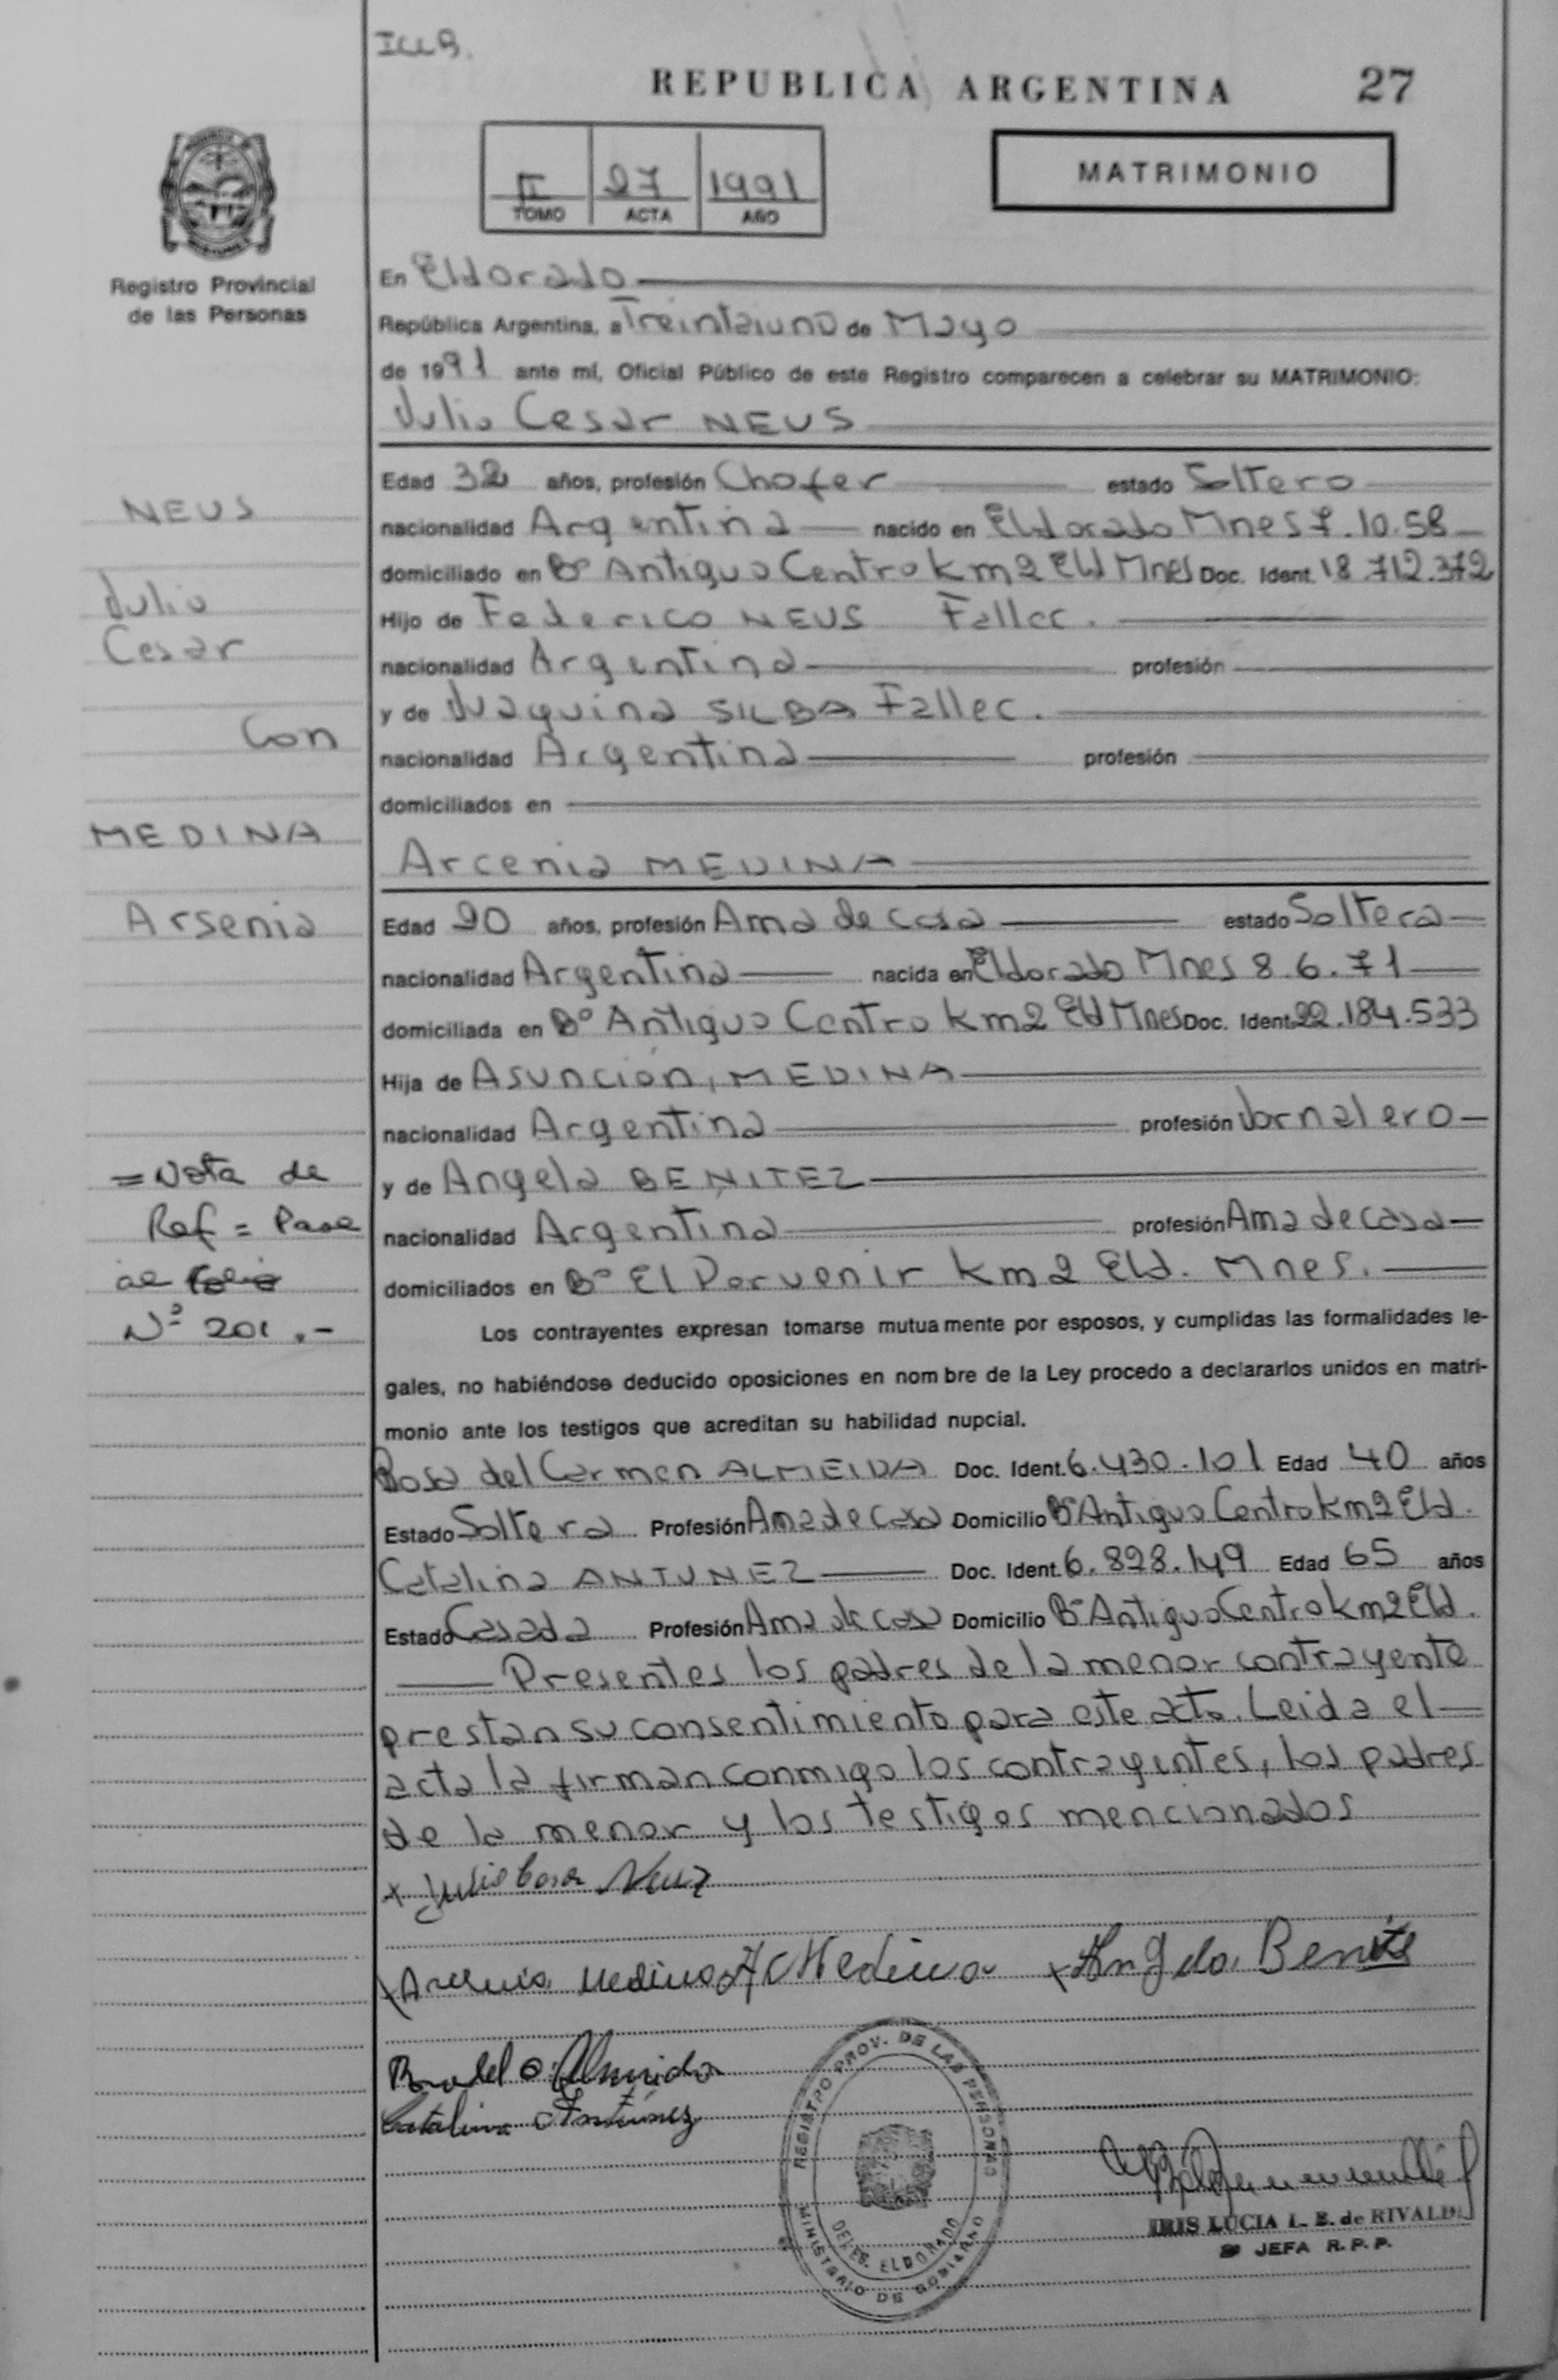 REPUBLICA ARGENTINA 27
II 27 1991
TOMO ACTA AÑO
MATRIMONIO
Registro Provincial
de las Personas
En Eldorado
República Argentina, a Treintaiuno de Mayo
de 1991 ante mí, Oficial Público de este Registro comparecen a celebrar su MATRIMONIO:
Julio Cesar NEUS
Edad 32 años, profesión Chofer estado Soltero
nacionalidad Argentina nacido en Eldorado Mnes 7.10.58
domiciliado en Bº Antiguo Centro km 2 Eld Mnes Doc. Ident. 18.712.372
Hijo de Federico NEUS Fallec.
nacionalidad Argentina profesión
y de Juaquina SILBA Fallec.
nacionalidad Argentina profesión
domiciliados en
Arcenia MEDINA
Edad 20 años, profesión Ama de casa estado Soltera
nacionalidad Argentina nacida en Eldorado Mnes 8.6.71
domiciliada en Bº Antiguo Centro km 2 Eld Mnes Doc. Ident. 22.184.533
Hija de Asunción, MEDINA
nacionalidad Argentina profesión Jornalero
y de Angela BENITEZ
nacionalidad Argentina profesión Ama de casa
domiciliados en Bº El Porvenir km 2 Eld. Mnes.
Los contrayentes expresan tomarse mutuamente por esposos, y cumplidas las formalidades le-
gales, no habiéndose deducido oposiciones en nom bre de la Ley procedo a declararlos unidos en matri-
monio ante los testigos que acreditan su habilidad nupcial.
Rosa del Carmen ALMEIDA Doc. Ident. 6.430.101 Edad 40 años
Estado Soltera Profesión Ama de casa Domicilio Bº Antiguo Centro km 2 Eld.
Catalina ANTUNEZ Doc. Ident. 6.828.149 Edad 65 años
Estado Casada Profesión Ama de casa Domicilio Bº Antiguo Centro km 2 Eld.
Presentes los padres de la menor contrayente
prestan su consentimiento para este acto. Leida el
acta la firman conmigo los contrayentes, los padres
de la menor y los testigos mencionados
NEUS
Julio
Cesar
Con
MEDINA
Arsenia
= Nota de
Ref = Pase
al folio
Nº 201.-
x Julio Cesar Neuz
x Arsenia Medina A C Medina x Angela Benite
Rosa del C. Almeida
Catalina Antúnez
REGISTRO PROV. DE LAS PERSONAS
DELEG. ELDORADO
MINISTERIO DE GOBIERNO
IRIS LUCIA L. B. de RIVALDI
JEFA R. P. P.